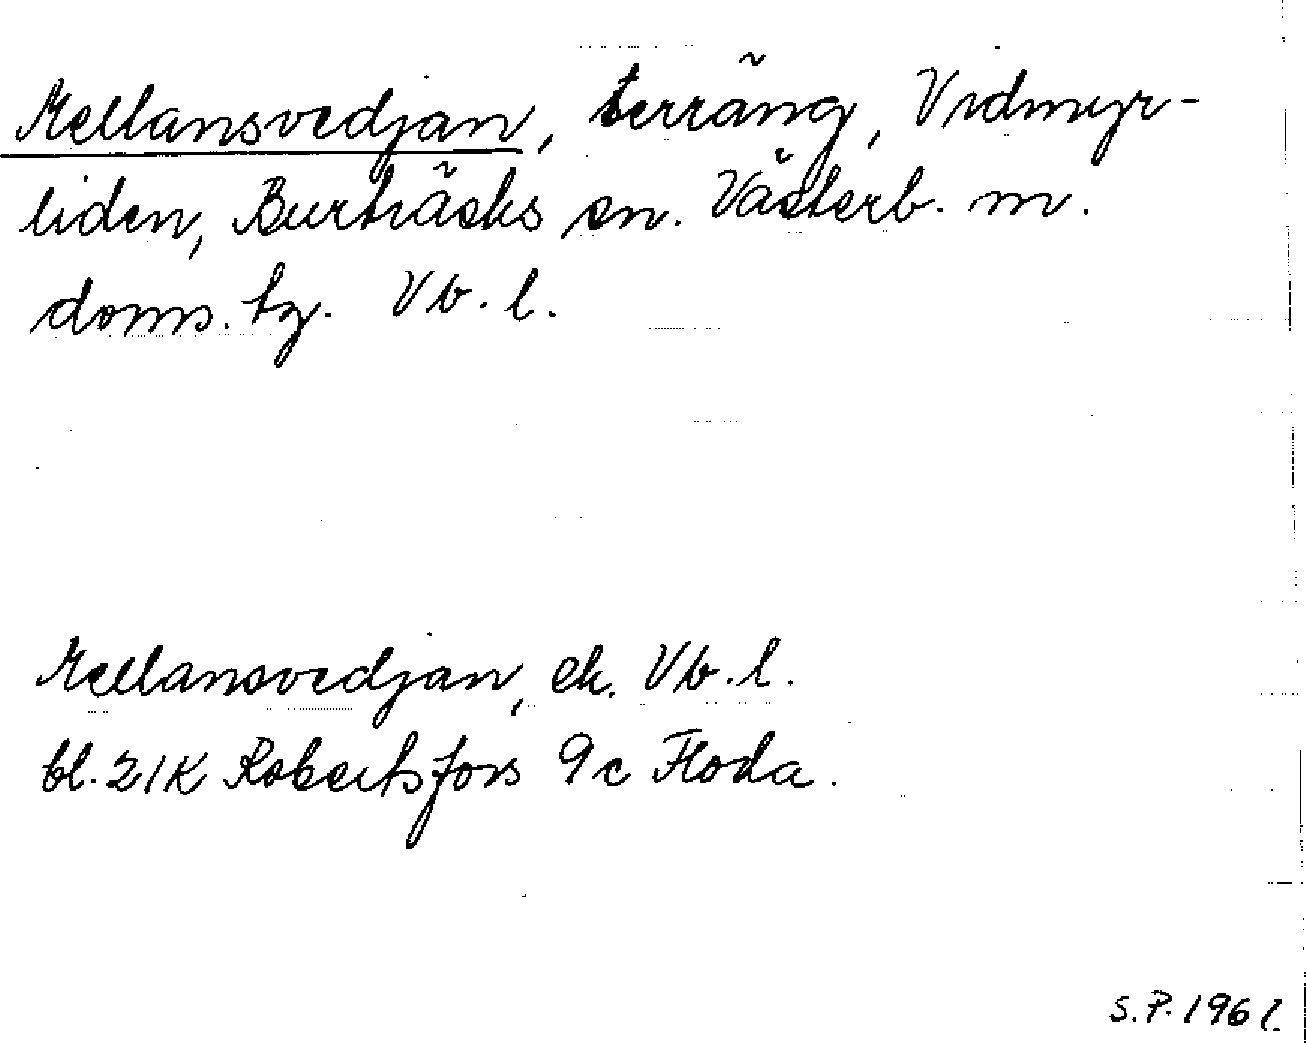 Mellansvedjan, terräng, Vidmyr-
liden, Burträsks sn. Västerb. m.
doms. tg. Vb. l.
Mellansvedjan, ek. Vb. l.
bl. 21K Robertsfors 9c Floda.
S.P. 1961.